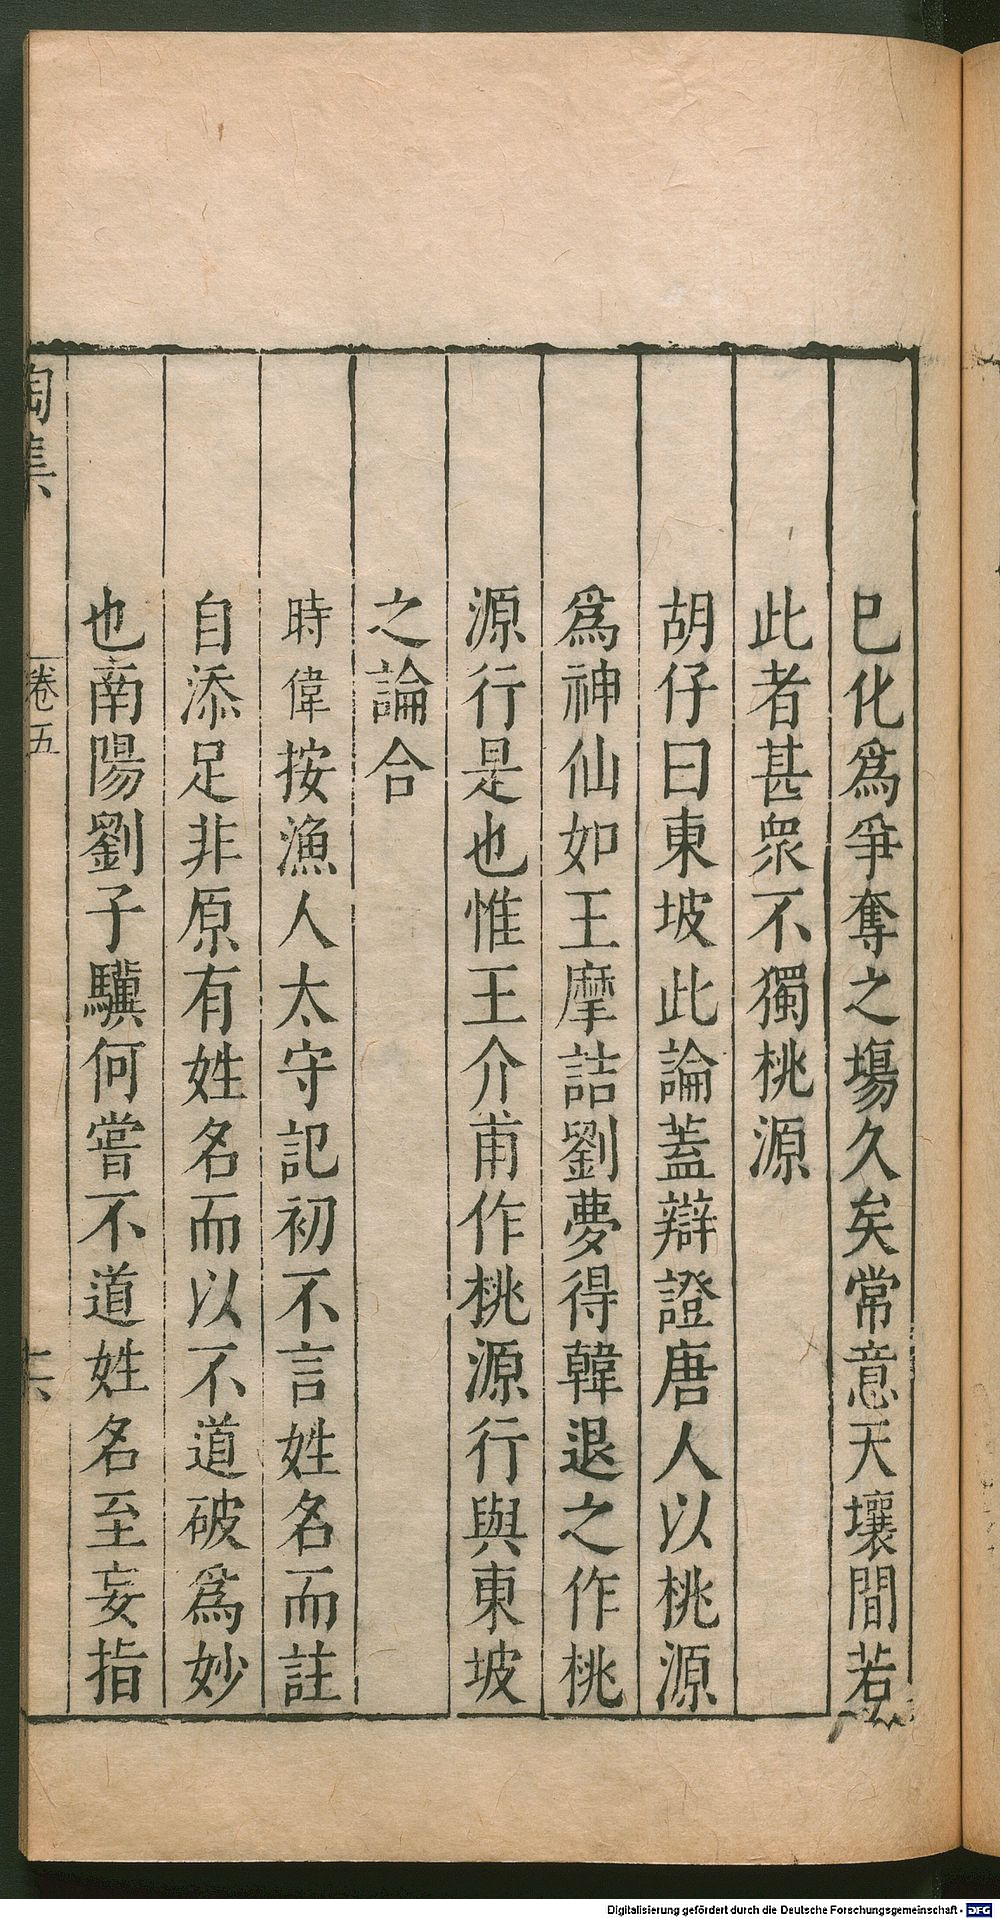 已化爲爭奪之場久矣常意天壤間若
此者甚衆不獨桃源
胡仔曰東坡此論蓋辯證唐人以桃源
爲神仙如王摩詰劉夢得韓退之作桃
源行是也惟王介甫作桃源行與東坡
之論合
時偉按漁人太守記初不言姓名而註
自添足非原有姓名而以不道破爲妙
也南陽劉子驥何嘗不道姓名至妄指
陶集
卷五
十六
Digitalisierung gefördert durch die Deutsche Forschungsgemeinschaft - DFG